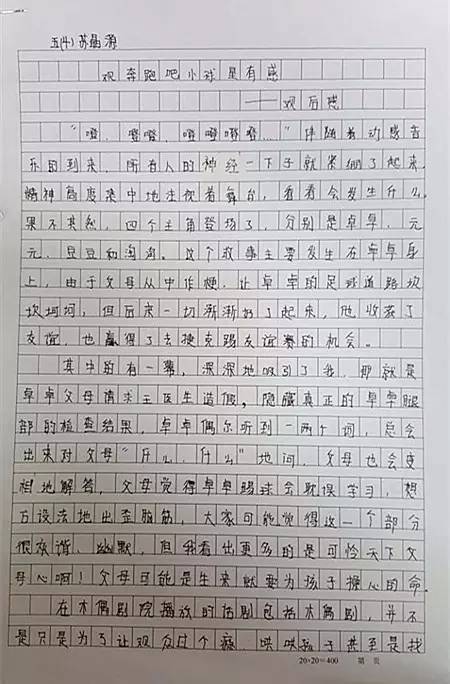 五(4) 苏晶渭
观奔跑吧小球星有感
——观后感
“噔，噔噔，噔噔噔噔…”伴随着动感音
乐的到来，所有人的神经一下子就紧绷了起来，
精神高度集中地注视着舞台，看看会发生什么。
果不其然，四个主角登场了，分别是卓卓、元
元、豆豆和淘淘。这个故事主要发生在卓卓身
上，由于父母从中作梗，让卓卓的足球道路坎
坎坷坷，但后来一切渐渐好了起来，他收获了
友谊，也赢得了去捷克踢友谊赛的机会。
其中的有一幕，深深地吸引了我，那就是
卓卓父母请求王医生造假，隐瞒真正的卓卓腿
部的检查结果，卓卓偶尔听到一两个词，总会
出来对父母“什么，什么”地问，父母也会变
相地解答，父母觉得卓卓踢球会耽误学习，想
方设法地出歪脑筋，大家可能觉得这一个部分
很欢谐、幽默，但我看出更多的是可怜天下父
母心啊！父母可能是生来就要为孩子操心的命。
在木偶剧院播放的话剧包括木偶剧，并不
是只是为了让观众过个瘾，哄哄孩子甚至是找
20×20=400 第 页